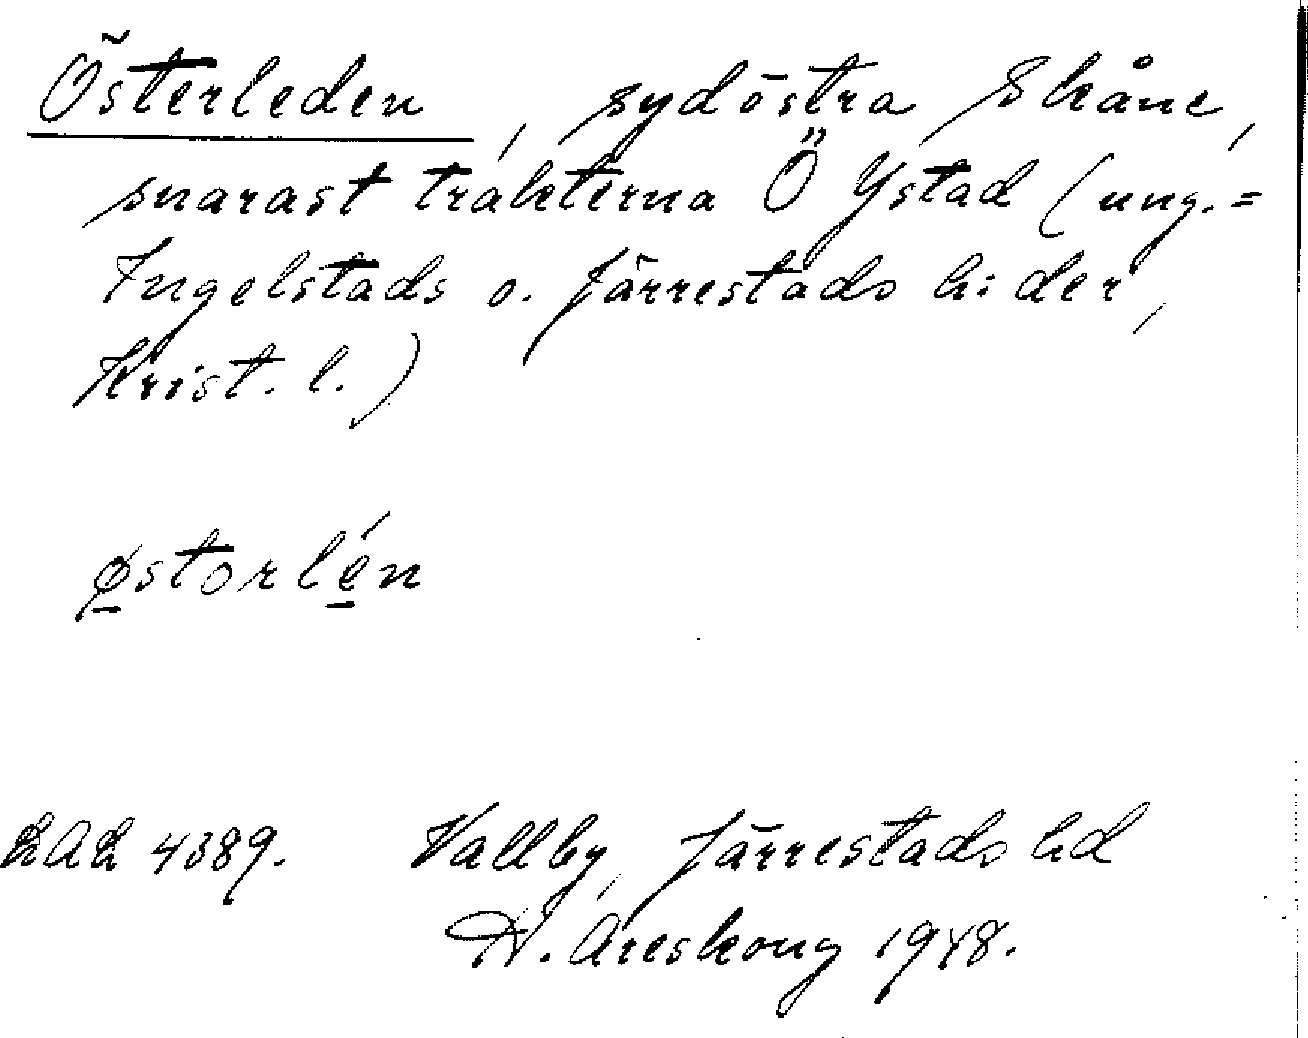 Österleden, sydöstra Skåne,
snarast trakterna Ö Ystad (ung. =
Ingelstads o. Järrestads h:der,
Krist. l.)
østorlén
LAL 4389. Vallby, Järrestads hd
H. Areskoug 1948.